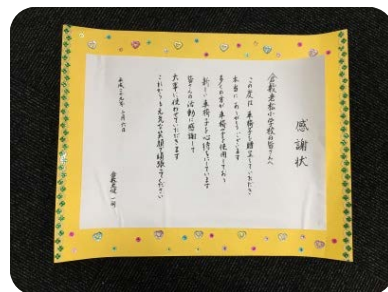 感謝状
倉敷老松小学校の皆さんへ
この度は車椅子を贈呈していただき
本当にありがとうございます
多くの方が車椅子を使用しており
新しい車椅子を心待ちにしています
皆さんの活動に感謝して
大事に使わせていただきます
これからも元気な笑顔で頑張ってください
平成二十九年 月 六日
一同